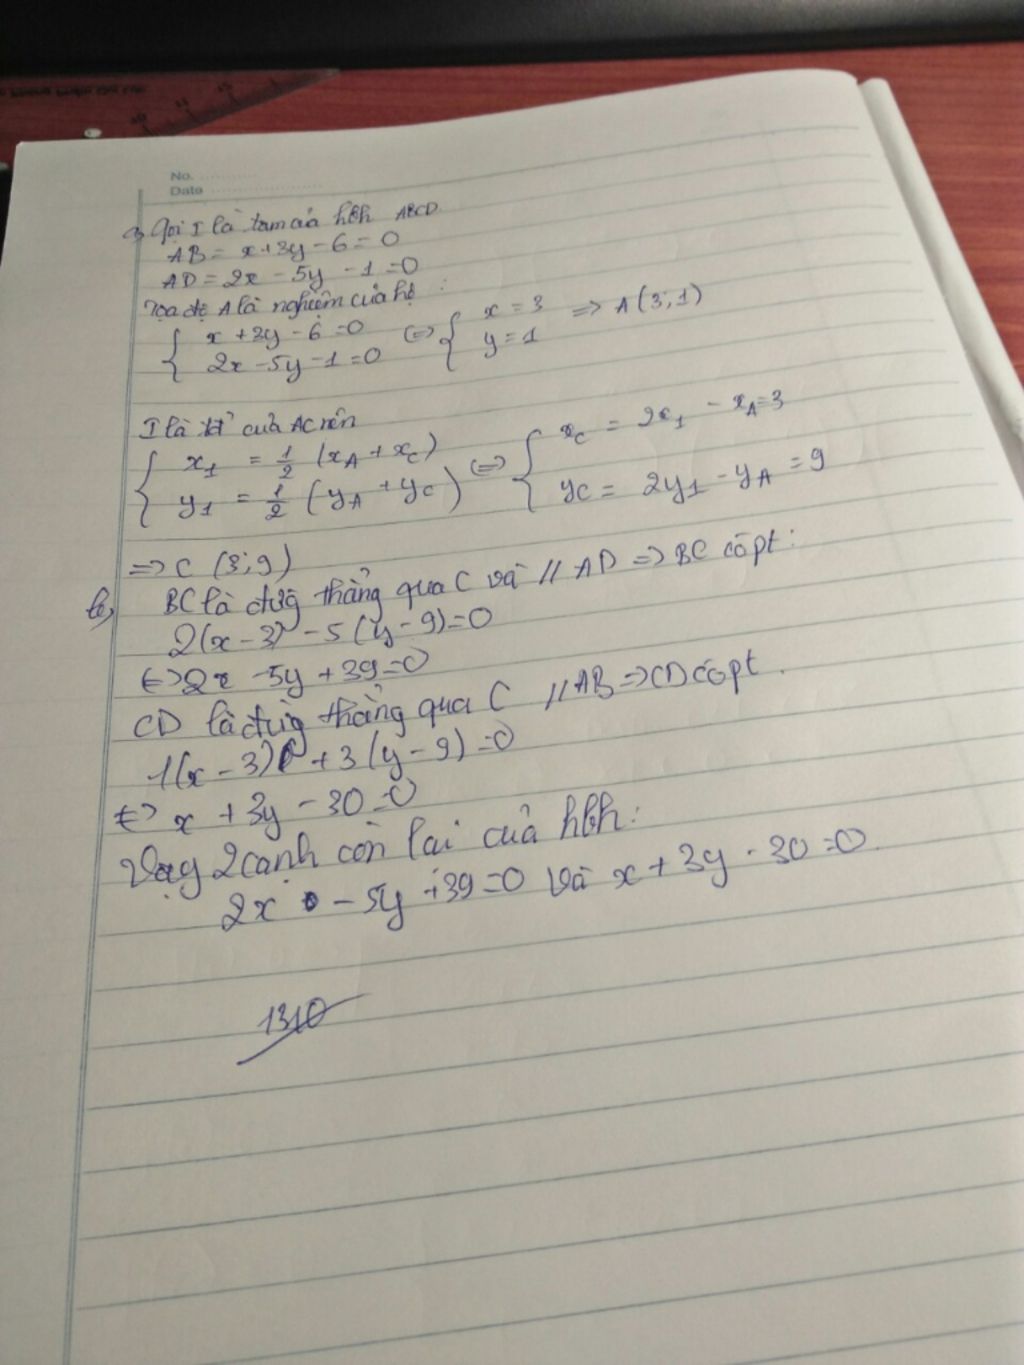 No.
Date
a, Gọi I là tâm của hbh ABCD
AB = x + 3y - 6 = 0
AD = 2x - 5y - 1 = 0
Tọa độ A là nghiệm của hệ :
{ x + 3y - 6 = 0 (=) { x = 3 => A (3; 1)
2x - 5y - 1 = 0 y = 1
I là tđ của AC nên
{ x1 = 1/2 (xA + xC) (=) { xC = 2x1 - xA = 3
y1 = 1/2 (yA + yC) yC = 2y1 - yA = 9
=> C (3; 9)
b, BC là đường thẳng qua C và // AD => BC có pt :
2(x - 3) - 5 (y - 9) = 0
<=> 2x - 5y + 39 = 0
CD là đường thẳng qua C // AB => CD có pt .
1(x - 3) + 3 (y - 9) = 0
<=> x + 3y - 30 = 0
Vậy 2 cạnh còn lại của hbh :
2x - 5y + 39 = 0 và x + 3y - 30 = 0 .
1310